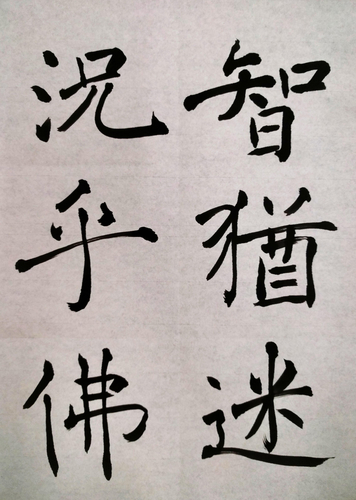 智猶迷
況乎佛